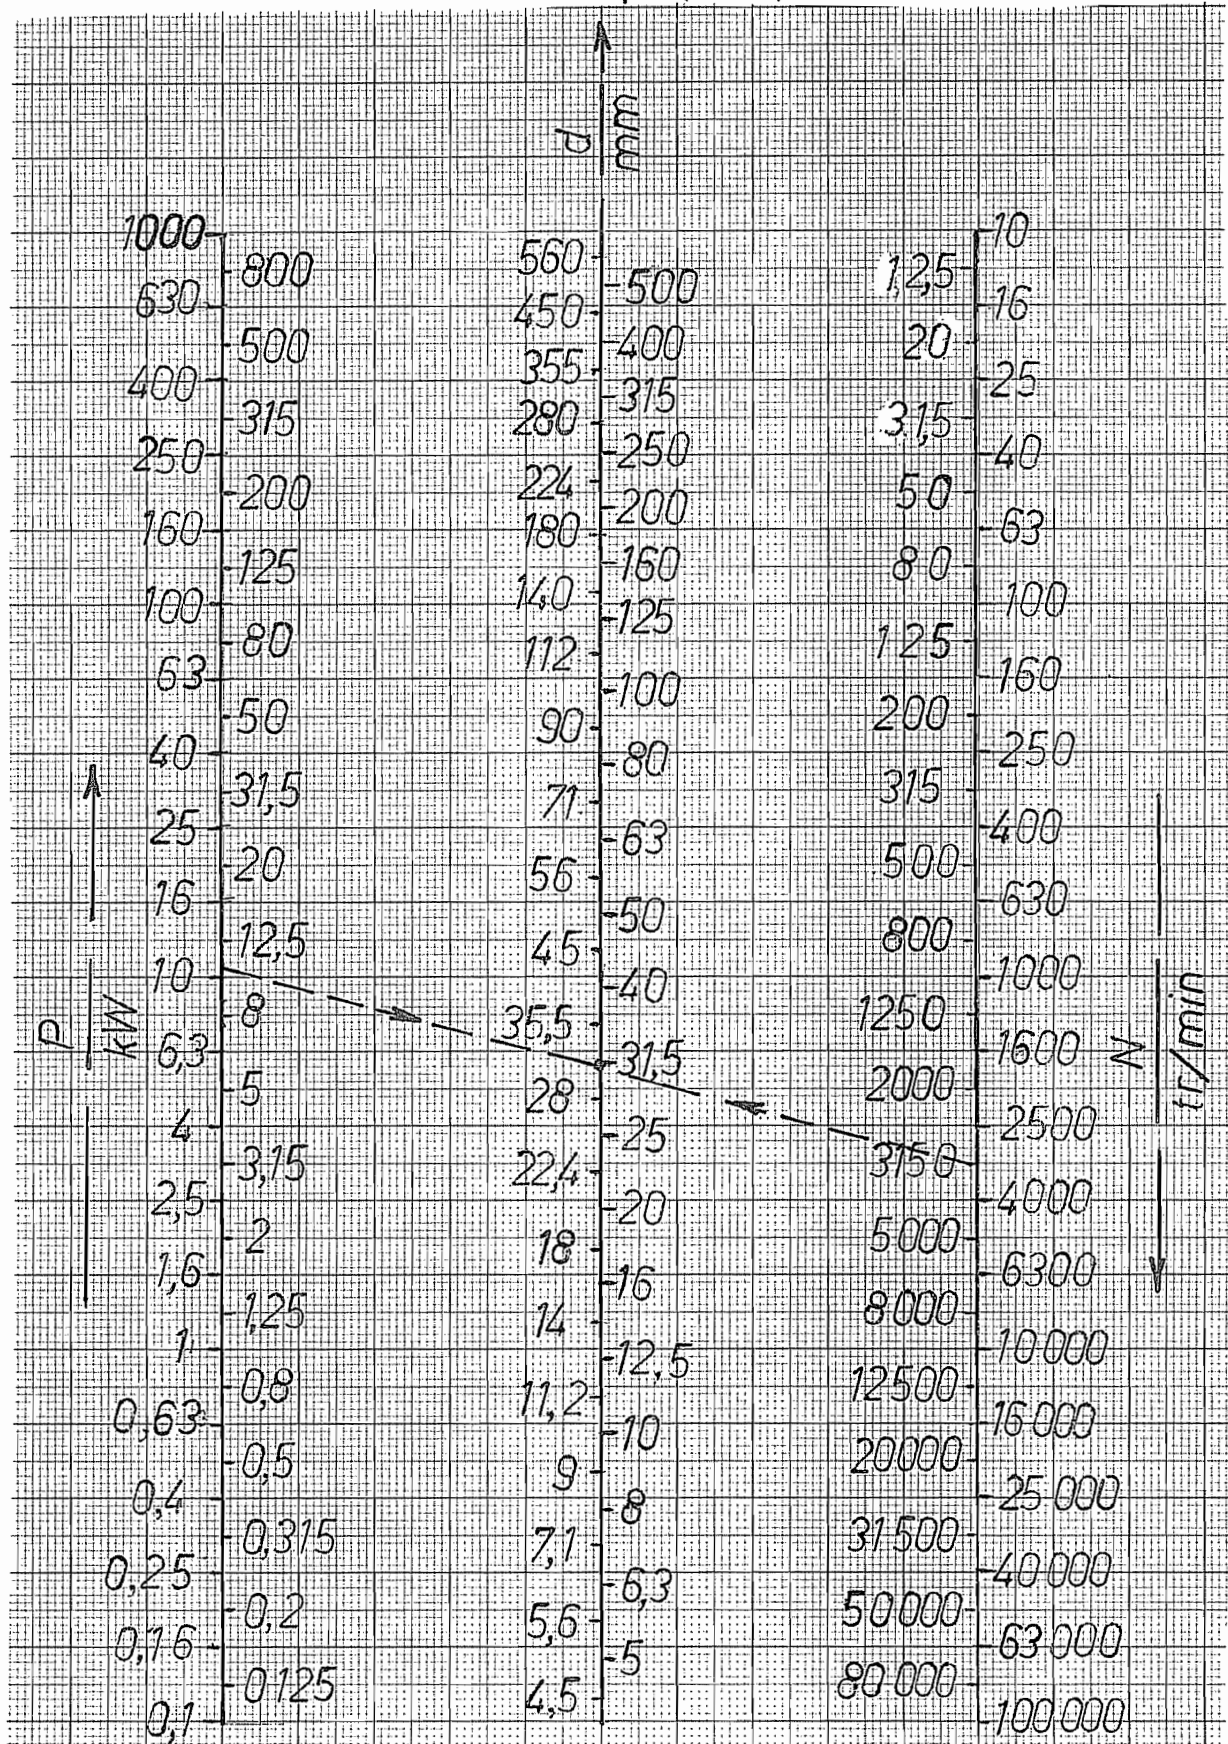 d
mm
P
kW
1000
800
630
500
400
315
250
200
160
125
100
80
63
50
40
31,5
25
20
16
12,5
10
8
6,3
5
4
3,15
2,5
2
1,6
1,25
1
0,8
0,63
0,5
0,4
0,315
0,25
0,2
0,16
0125
0,1
560
500
450
400
355
315
280
250
224
200
180
160
140
125
112
100
90
80
71
63
56
50
45
40
35,5
31,5
28
25
22,4
20
18
16
14
12,5
11,2
10
9
8
7,1
6,3
5,6
5
4,5
10
12,5
16
20
25
31,5
40
50
63
80
100
125
160
200
250
315
400
500
630
800
1000
1250
1600
2000
2500
3150
4000
5000
6300
8000
10000
12500
16000
20000
25000
31500
40000
50000
63000
80000
100000
N
tr/min